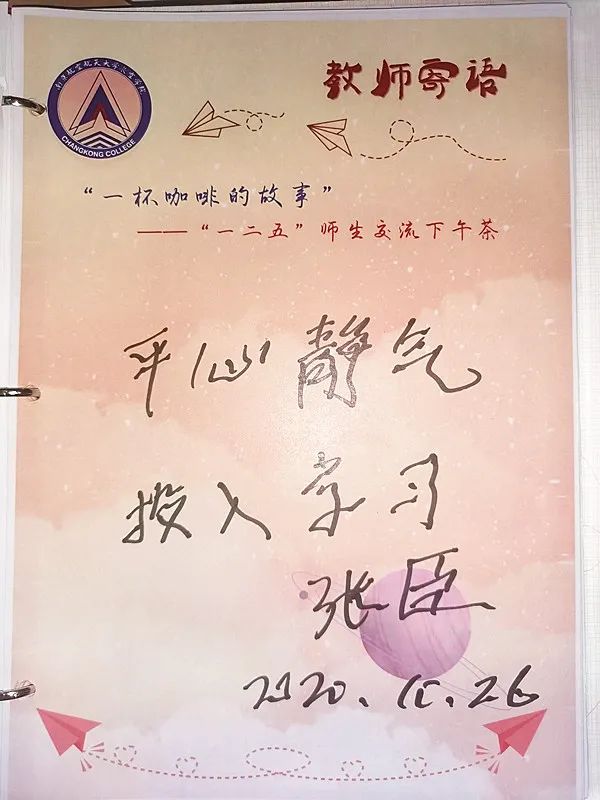 南京航空航天大学长空学院
CHANGKONG COLLEGE
教师寄语
“一杯咖啡的故事”
——“一二五”师生交流下午茶
平心静气
投入学习
张臣
2020.11.26